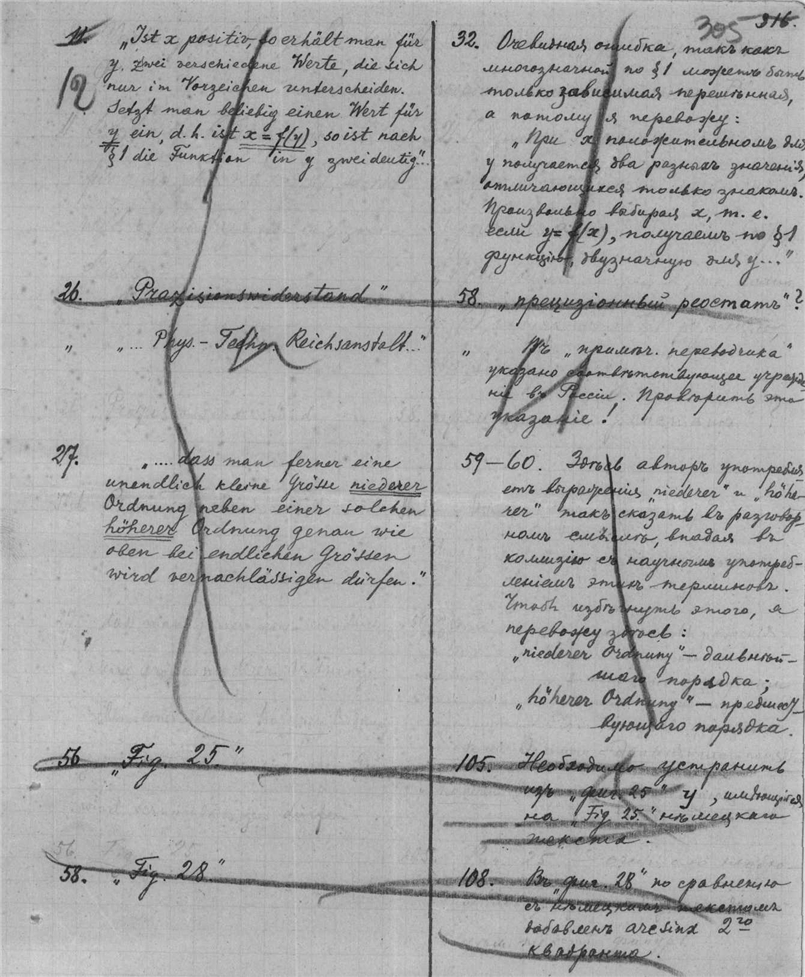 305 316.
11. „Ist x positiv, so erhält man für
12
y zwei verschiedene Werte, die sich
nur im Vorzeichen unterscheiden.
Setzt man beliebig einen Wert für
y ein, d. h. ist x = f(y), so ist nach
§ 1 die Funktion in y zweideutig"...
32. Очевидная ошибка, такъ какъ
многозначной по § 1 можетъ быть
только зависимая переменная,
а потому я перевожу:
„При x положительномъ для
y получается два разныхъ значенія,
отличающихся только знакомъ.
Произвольно выбирая x, т. е.
если y = f(x), получаемъ по § 1
функцію, двузначную для y..."
26. „Präzisionswiderstand"
58. „прецизіонный реостатъ"?
" „... Phys. - Techn. Reichsanstalt..."
" Въ „примѣч. переводчика"
указано соотвѣтствующее учрежде-
ніе въ Россіи. Провѣрить это
указаніе!
27. „.... dass man ferner eine
unendlich kleine Grösse niederer
Ordnung neben einer solchen
höherer Ordnung genau wie
oben bei endlichen Grössen
wird vernachlässigen dürfen."
59-60. Здѣсь авторъ употребля
етъ выраженія „niederer" и „höhe-
rer" такъ сказать въ разговор-
номъ смыслѣ, впадая въ
коллизію съ научнымъ употреб-
леніемъ этихъ терминовъ.
Чтобы избѣгнуть этого, я
перевожу здѣсь:
„niederer Ordnung" - дальнѣй-
шаго порядка;
„höherer Ordnung" - предшест-
вующаго порядка.
56 „Fig. 25."
105. Необходимо устранить
изъ „фиг. 25" y, имѣющійся
на „Fig. 25." нѣмецкаго
текста.
58. „Fig. 28"
108. Въ „фиг. 28" по сравненію
съ нѣмецкимъ текстомъ
добавленъ arcsinx 2го
квадранта.